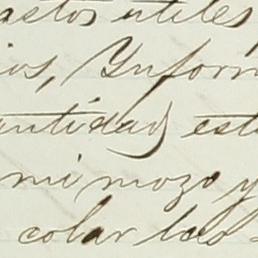 astos utiles
ios, Ynform
antidad est
mi mozo y
colar los